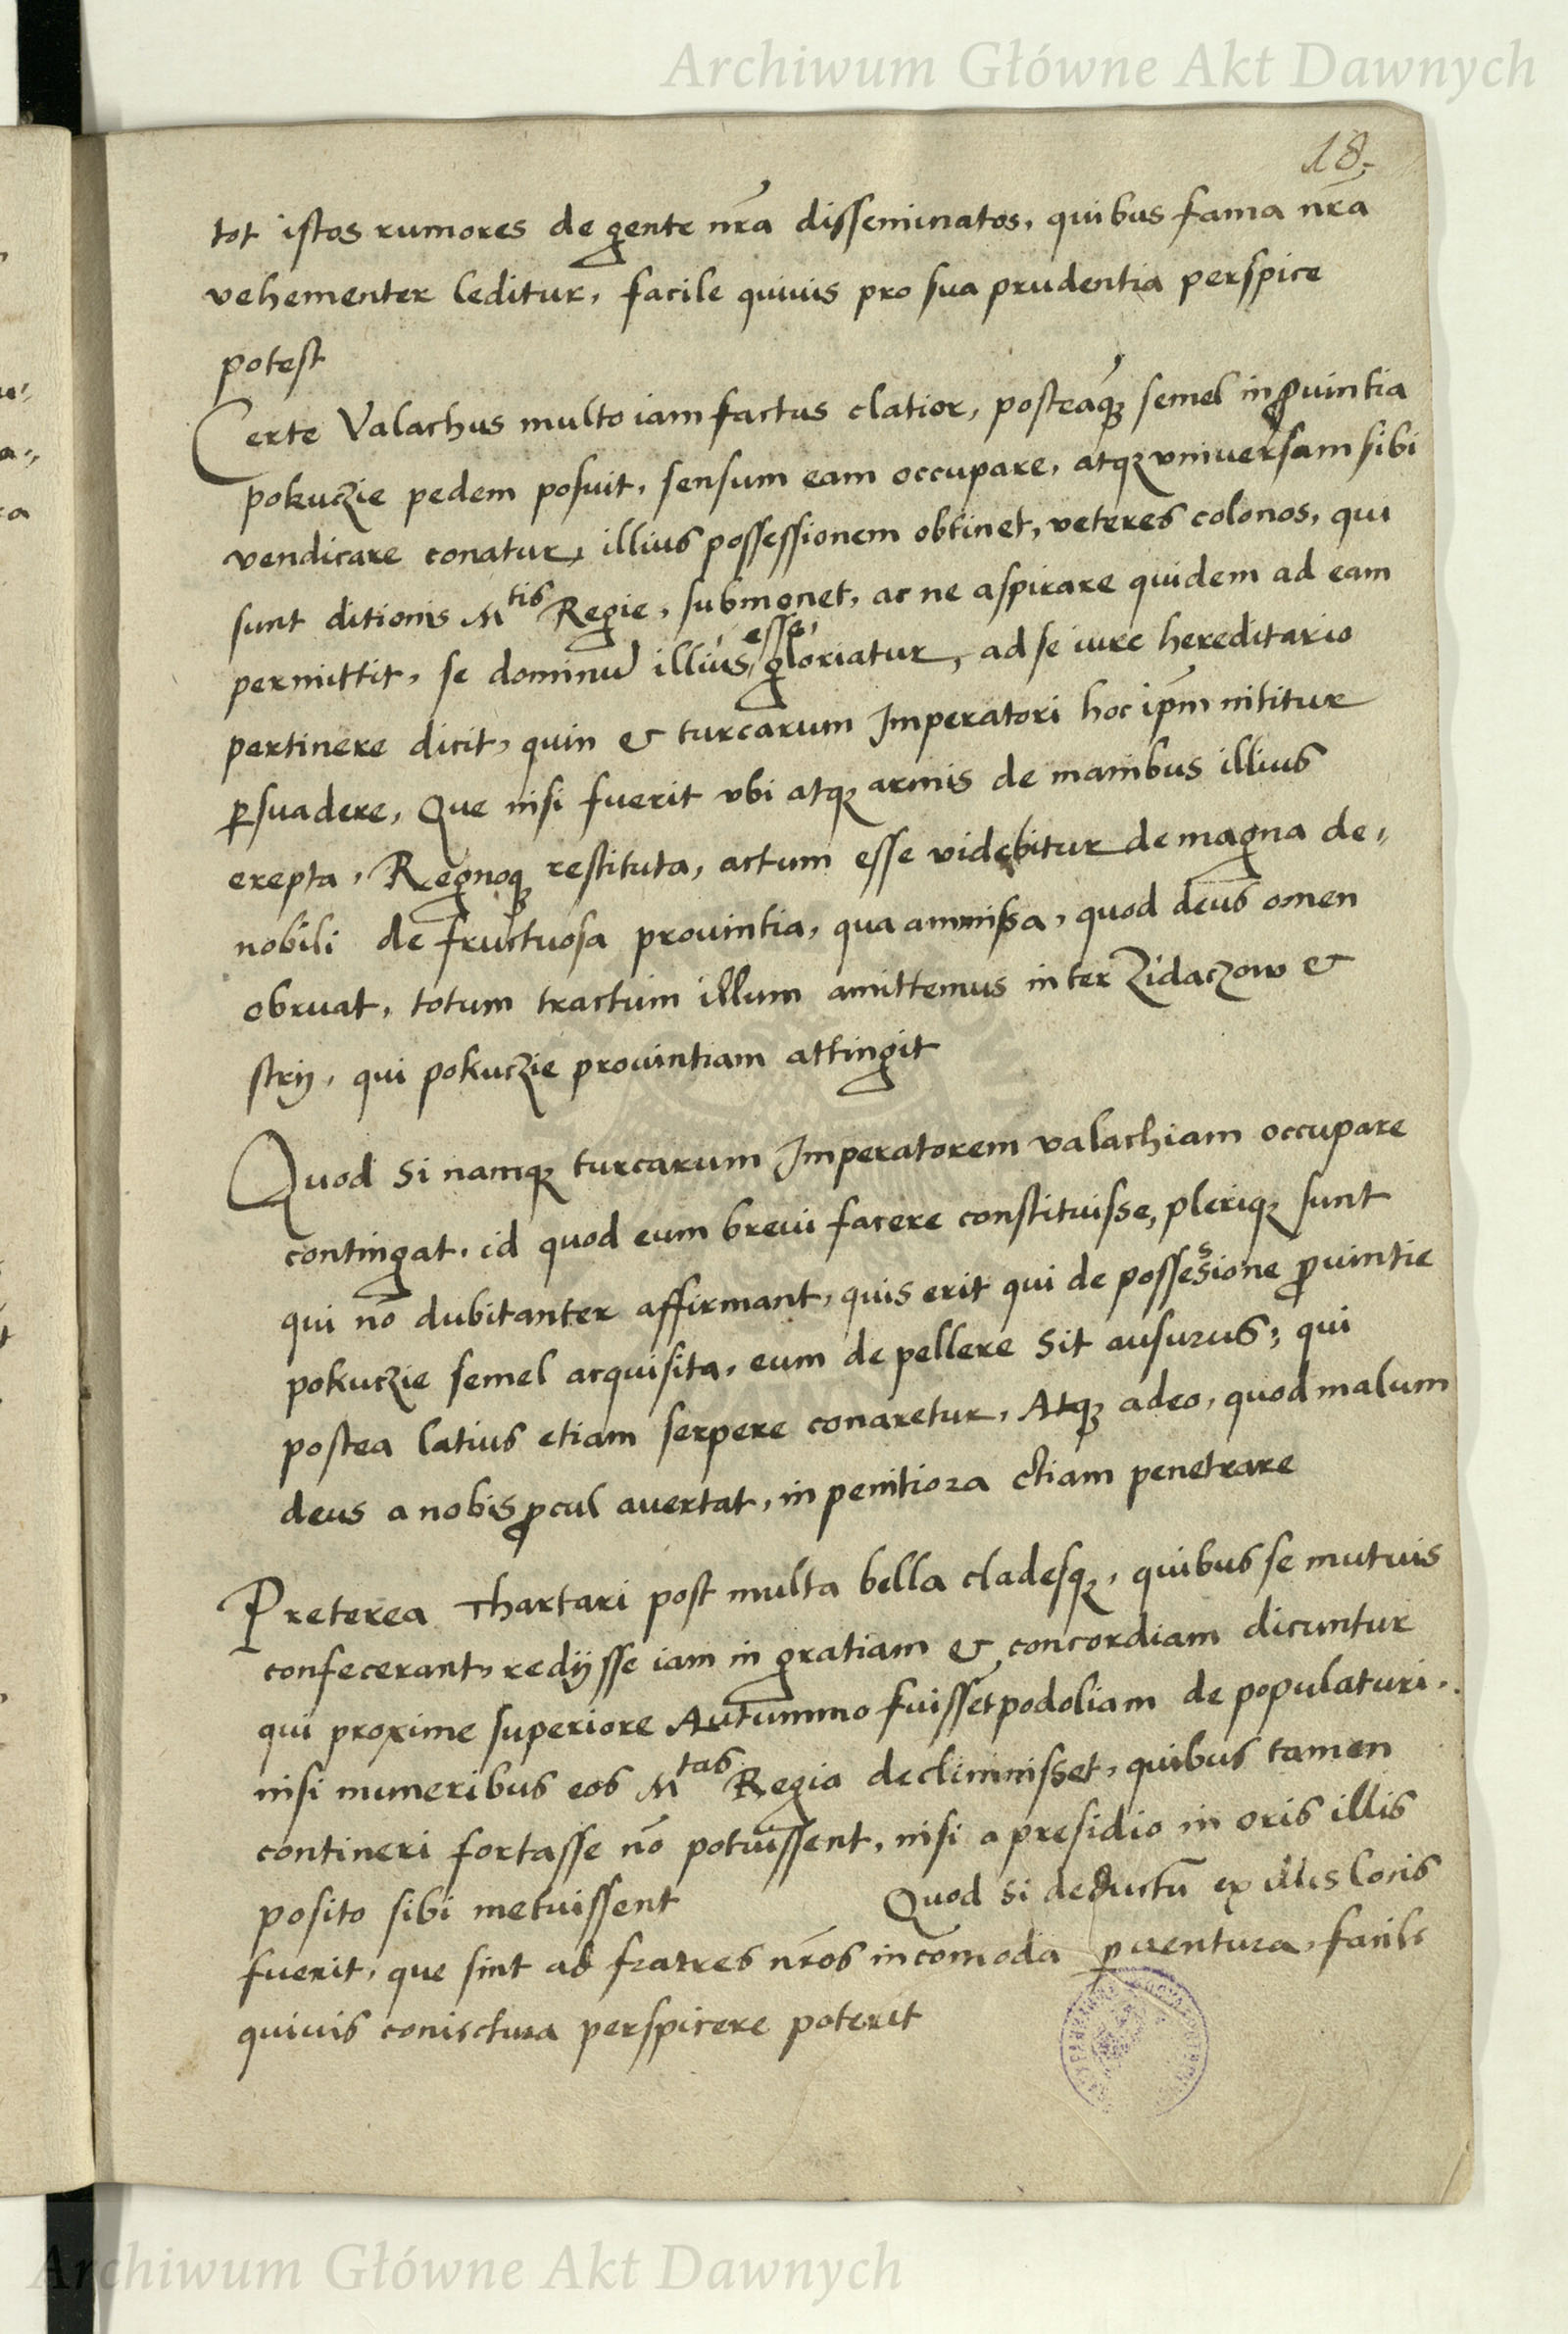 Archiwum Główne Akt Dawnych
18.
tot istos rumores de gente nr̃a disseminatos, quibus fama nr̃a
vehementer leditur, facile quiuis pro sua prudentia perspice
potest
Certe Valachus multo iam factus elatior, posteaq̃ semel in ꝓuintia
pokuczie pedem posuit, sensum eam occupare, atqꝫ vniuersam sibi
vendicare conatur, illius possessionem obtinet, veteres colonos, qui
sunt ditionis Mtis Regie, submonet, ac ne aspirare quidem ad eam
permittit, se dominũ illius esse, gloriatur, ad se iure hereditario
pertinere dicit, quin & turcarum Imperatori hoc ip̃m nititur
ꝑsuadere, Que nisi fuerit vbi atqꝫ armis de manibus illius
erepta, Regnoqꝫ restituta, actum esse videbitur de magna de,
nobili de fructuosa prouintia, qua ammissa, quod deus omen
obruat, totum tractum illum amittemus inter Zidaczow &
strij, qui pokuczie prouintiam attingit
Quod si namqꝫ turcarum Imperatorem valachiam occupare
contingat, id quod eum breui facere constituisse, pleriqꝫ sunt
qui nõ dubitanter affirmant, quis erit qui de possessione ꝓuintie
pokuczie semel acquisita, eum de pellere sit ausurus; qui
postea latius etiam serpere conaretur, Atqꝫ adeo, quod malum
deus a nobis ꝓcul auertat, in penitiora etiam penetrare
Preterea Thartari post multa bella cladesqꝫ, quibus se mutuis
confecerant, redijsse iam in gratiam & concordiam dicuntur
qui proxime superiore Autummo fuisset podoliam de populaturi.
nisi muneribus eos Mtas Regia decliminisset, quibus tamen
contineri fortasse nõ potuissent, nisi a presidio in oris illis
posito sibi metuissent Quod si deductũ ex illis locis
fuerit, que sint ad fratres nr̃os incõmoda ꝑuentura, facile
quiuis coniectura perspicere poterit
Archiwum Główne Akt Dawnych